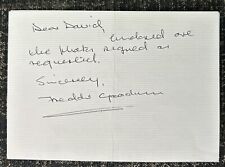 Dear David,
Enclosed are
the photos signed as
requested.
Sincerely,
Freddie